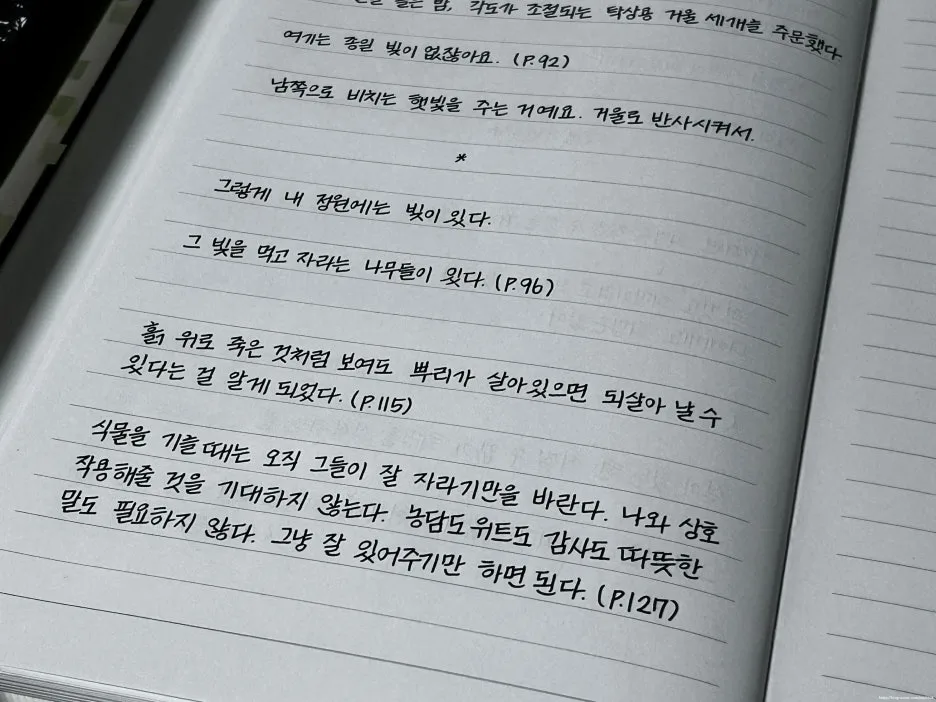 밤, 각도가 조절되는 탁상용 거울 세개를 주문했다
여기는 종일 빛이 없잖아요. (P.92)
남쪽으로 비치는 햇빛을 주는 거예요. 거울로 반사시켜서.
*
그렇게 내 정원에는 빛이 있다.
그 빛을 먹고 자라는 나무들이 있다. (P.96)
흙 위로 죽은 것처럼 보여도 뿌리가 살아있으면 되살아 날 수
있다는 걸 알게 되었다. (P.115)
식물을 기를 때는 오직 그들이 잘 자라기만을 바란다. 나와 상호
작용해줄 것을 기대하지 않는다. 농담도 위트도 감사도 따뜻한
말도 필요하지 않다. 그냥 잘 있어주기만 하면 된다. (P.127)